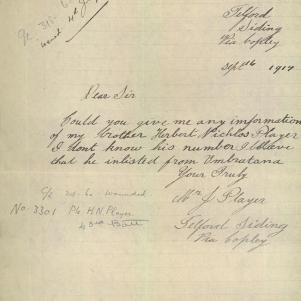 Telford
Siding
Via Copley
Sept 16 1917
Dear Sir
Could you give me any information
of my Brother Herbert Nichlos Player
I dont know his number I beleave
that he inlisted from Umbratana
Your Truly
Mr J Player
Telford Siding
Via Copley
wounded
No 3301 Pte H.N. Player
43rd Batt